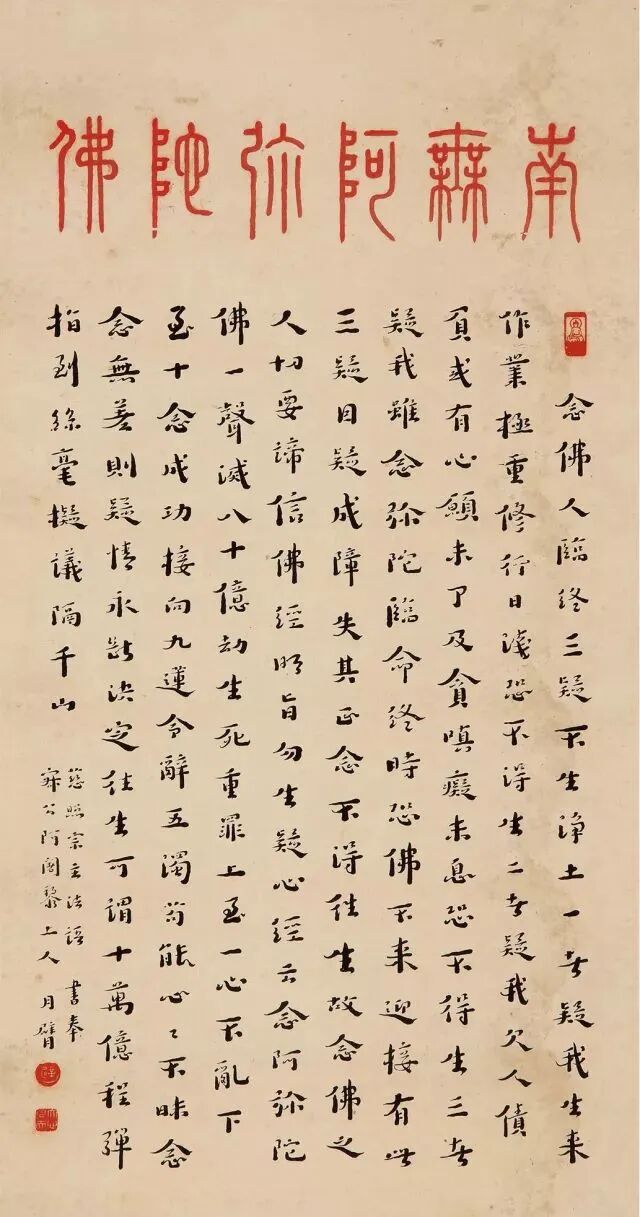 南無阿弥陀佛
念佛人臨终三疑不生淨土一者疑我生来
作業極重修行日淺恐不得生二者疑我欠人債
負或有心願未了及貪嗔癡未息恐不得生三者
疑我雖念弥陀臨命终時恐佛不来迎接有此
三疑因疑成障失其正念不得往生故念佛之
人切要諦信佛經明旨勿生疑心經云念阿弥陀
佛一聲滅八十億劫生死重罪上至一心不亂下
至十念成功接向九蓮令辭五濁苟能心々不昧念
念無差則疑情永斷決定往生可謂十萬億程彈
指到絲毫擬議隔千山
慈照宗主法語 書奉
寂公阿闍黎上人 月臂